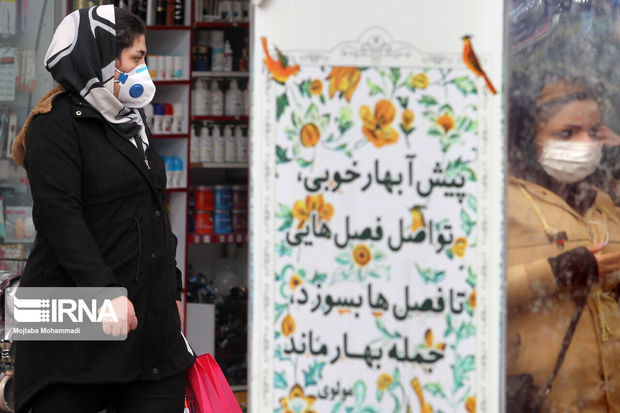 پیش آ بهار خوبی،
تو اصل فصل هایی
تا فصل ها بسوزد،
جمله بهار ماند
مولوی
IRNA
Mojtaba Mohammadi